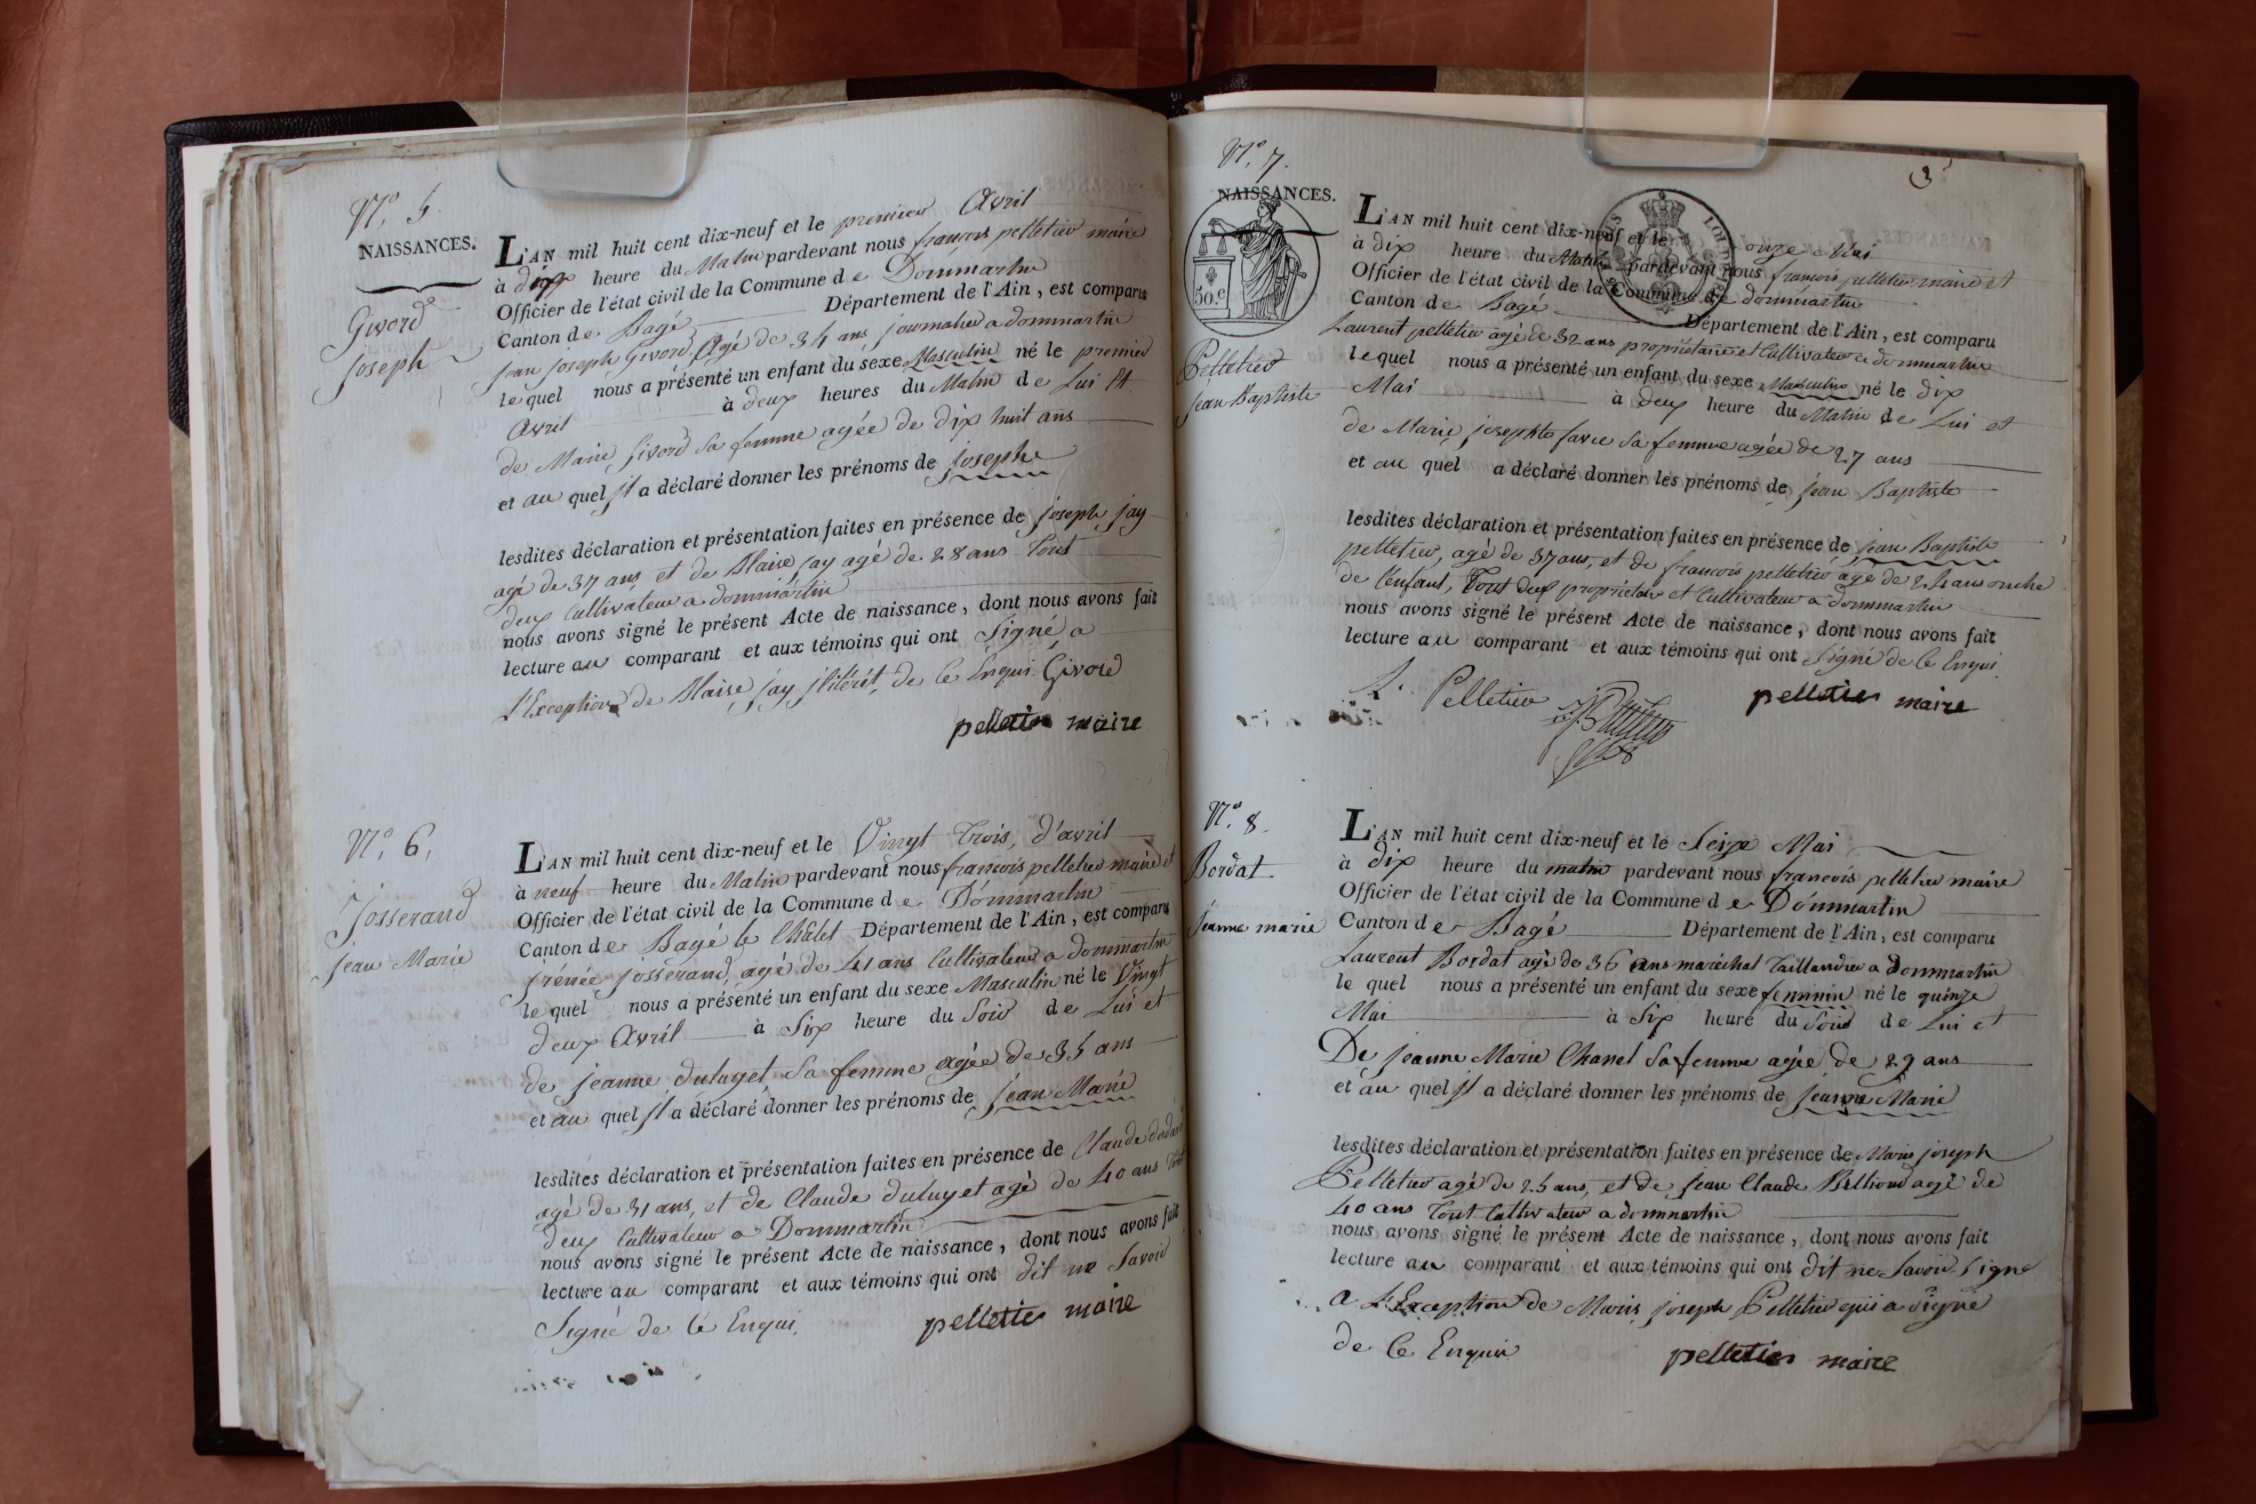 N.º 5.
NAISSANCES.
Givord
joseph
L'AN mil huit cent dix-neuf et le premier Avril
à dix heure du Matin pardevant nous françois pelletier maire
Officier de l'état civil de la Commune de Dommartin
Canton de Bagé Département de l'Ain, est comparu
jean joseph Givord, Agé de 34 ans journalier a dommartin
lequel nous a présenté un enfant du sexe Masculin né le premier
Avril à deux heures du Matin de Lui Et
de Marie Givord Sa femme agée de dix huit ans
et au quel jl a déclaré donner les prénoms de josephe
lesdites déclaration et présentation faites en présence de joseph jay
agé de 37 ans, et de Blaise jay agé de 28 ans Tout
deux Cultivateur a dommartin
nous avons signé le présent Acte de naissance, dont nous avons fait
lecture au comparant et aux témoins qui ont Signé a
l'Exception de Blaise jay jlitérét, de Ce Enqui Givord
pelletier maire
N.º 6.
josserand
jean Marie
L'AN mil huit cent dix-neuf et le Vingt Trois, d'avril
à neuf heure du Matin pardevant nous francois pelletier maire et
Officier de l'état civil de la Commune de Dommartin
Canton de Bagé le Châtel Département de l'Ain, est comparu
jrénée josserand, agé de 41 ans Cultivateur a dommartin
lequel nous a présenté un enfant du sexe Masculin né le Vingt
deux Avril à Six heure du Soir de Lui et
de jeanne duluyet, Sa femme agée de 35 ans
et au quel jl a déclaré donner les prénoms de jean Marie
lesdites déclaration et présentation faites en présence de Claude
agé de 31 ans, et de Claude duluyet agé de 40 ans Tout
deux Cultivateur a Dommartin
nous avons signé le présent Acte de naissance, dont nous avons fait
lecture au comparant et aux témoins qui ont dit ne Savoir
Signé de Ce Enqui.
pelletier maire
3
N.º 7.
NAISSANCES.
50.c
Pelletier
jean Baptiste
L'AN mil huit cent dix-neuf et le onze Mai
à dix heure du Matin pardevant nous francois pelletier maire et
Officier de l'état civil de la Commune de dommartin
Canton de Bagé Département de l'Ain, est comparu
Laurent pelletier agé de 32 ans propriétaire et Cultivateur a dommartin
lequel nous a présenté un enfant du sexe Masculin né le dix
Mai à deux heure du Matin de Lui et
de Marie josephte favre Sa femme agée de 27 ans
et au quel a déclaré donner les prénoms de jean Baptiste
lesdites déclaration et présentation faites en présence de jean Baptiste
pelletier, agé de 37 ans, et de francois pelletier agé de 24 ans oncle
de l'enfant, Tout deux propriétair et Cultivateur a dommartin
nous avons signé le présent Acte de naissance, dont nous avons fait
lecture au comparant et aux témoins qui ont Signé de Ce Enqui
L. Pelletier
pelletier maire
N.º 8.
Bordat.
jeanne marie
L'AN mil huit cent dix-neuf et le Seize Mai
à dix heure du matin pardevant nous francois pelletier maire
Officier de l'état civil de la Commune de Dommartin
Canton de Bagé Département de l'Ain, est comparu
Laurent Bordat agé de 36 ans maréchal Taillandier a Dommartin
lequel nous a présenté un enfant du sexe feminin né le quinze
Mai à Six heure du Soir de Lui et
De jeanne Marie Chanel Sa femme agée de 29 ans
et au quel jl a déclaré donner les prénoms de jeanne Marie
lesdites déclaration et présentation faites en présence de Marie joseph
Pelletier agé de 25 ans, et de jean Claude Billioud agé de
40 ans Tout Cultivateur a dommartin
nous avons signé le présent Acte de naissance, dont nous avons fait
lecture au comparant et aux témoins qui ont dit ne Savoir Signe
a L'Exception de Marie joseph Pelletier qui a Signé
de Ce Enquis
pelletier maire